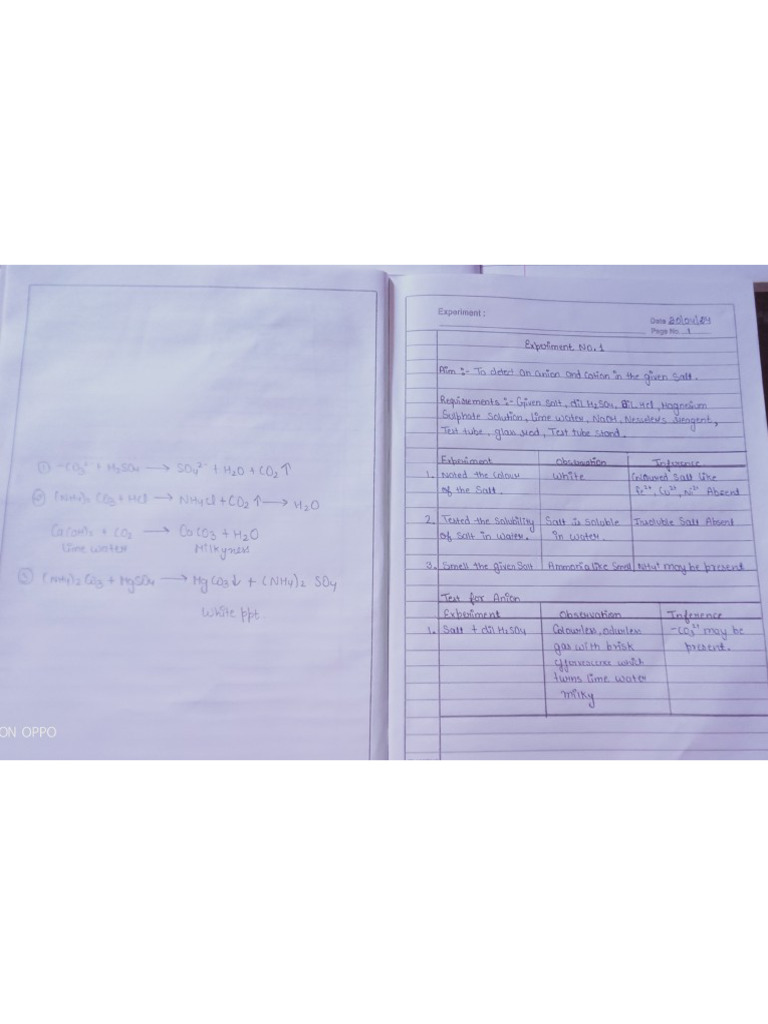 ① -CO3²⁻ + H2SO4 → SO4²⁻ + H2O + CO2↑
② (NH4)2 CO3 + HCl → NH4Cl + CO2 ↑ → H2O
Ca(OH)2 + CO2 → CaCO3 + H2O
Lime water Milkyness
③ (NH4)2 CO3 + MgSO4 → MgCO3↓ + (NH4)2 SO4
White ppt.
ON OPPO
Experiment :
Date
Page No. 1
Experiment No. 1
Aim :- To detect an anion and cation in the given Salt.
Requirements :- Given Salt, dil H2SO4, dil HCl, Magnesium
Sulphate Solution, Lime water, NaOH, Nessler's reagent,
Test tube, glass rod, Test tube stand.
Experiment Observation Inference
1. Noted the Colour White Coloured Salt like
of the Salt. Fe²⁺, Co²⁺, Ni²⁺ Absent
2. Tested the Solubility Salt is Soluble Insoluble Salt Absent
of Salt in Water. in Water.
3. Smell the given Salt Ammonia like Smell NH4⁺ may be present
Test for Anion
Experiment Observation Inference
1. Salt + dil H2SO4 Colourless, odurless -CO3²⁻ may be
gas with brisk present.
effervescence which
turns lime water
milky